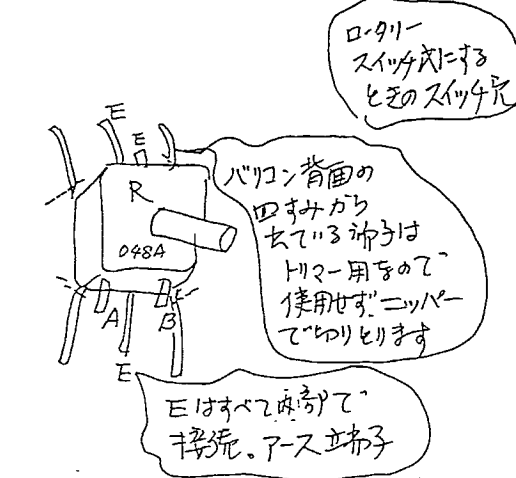 ロータリー
スイッチ式にする
ときのスイッチ穴
E
E
バリコン背面の
四すみから
出ている端子は
トリマー用なので
使用せず、ニッパー
で切りとります
R
048A
A
B
E
Eはすべて内部で
接続。アース端子